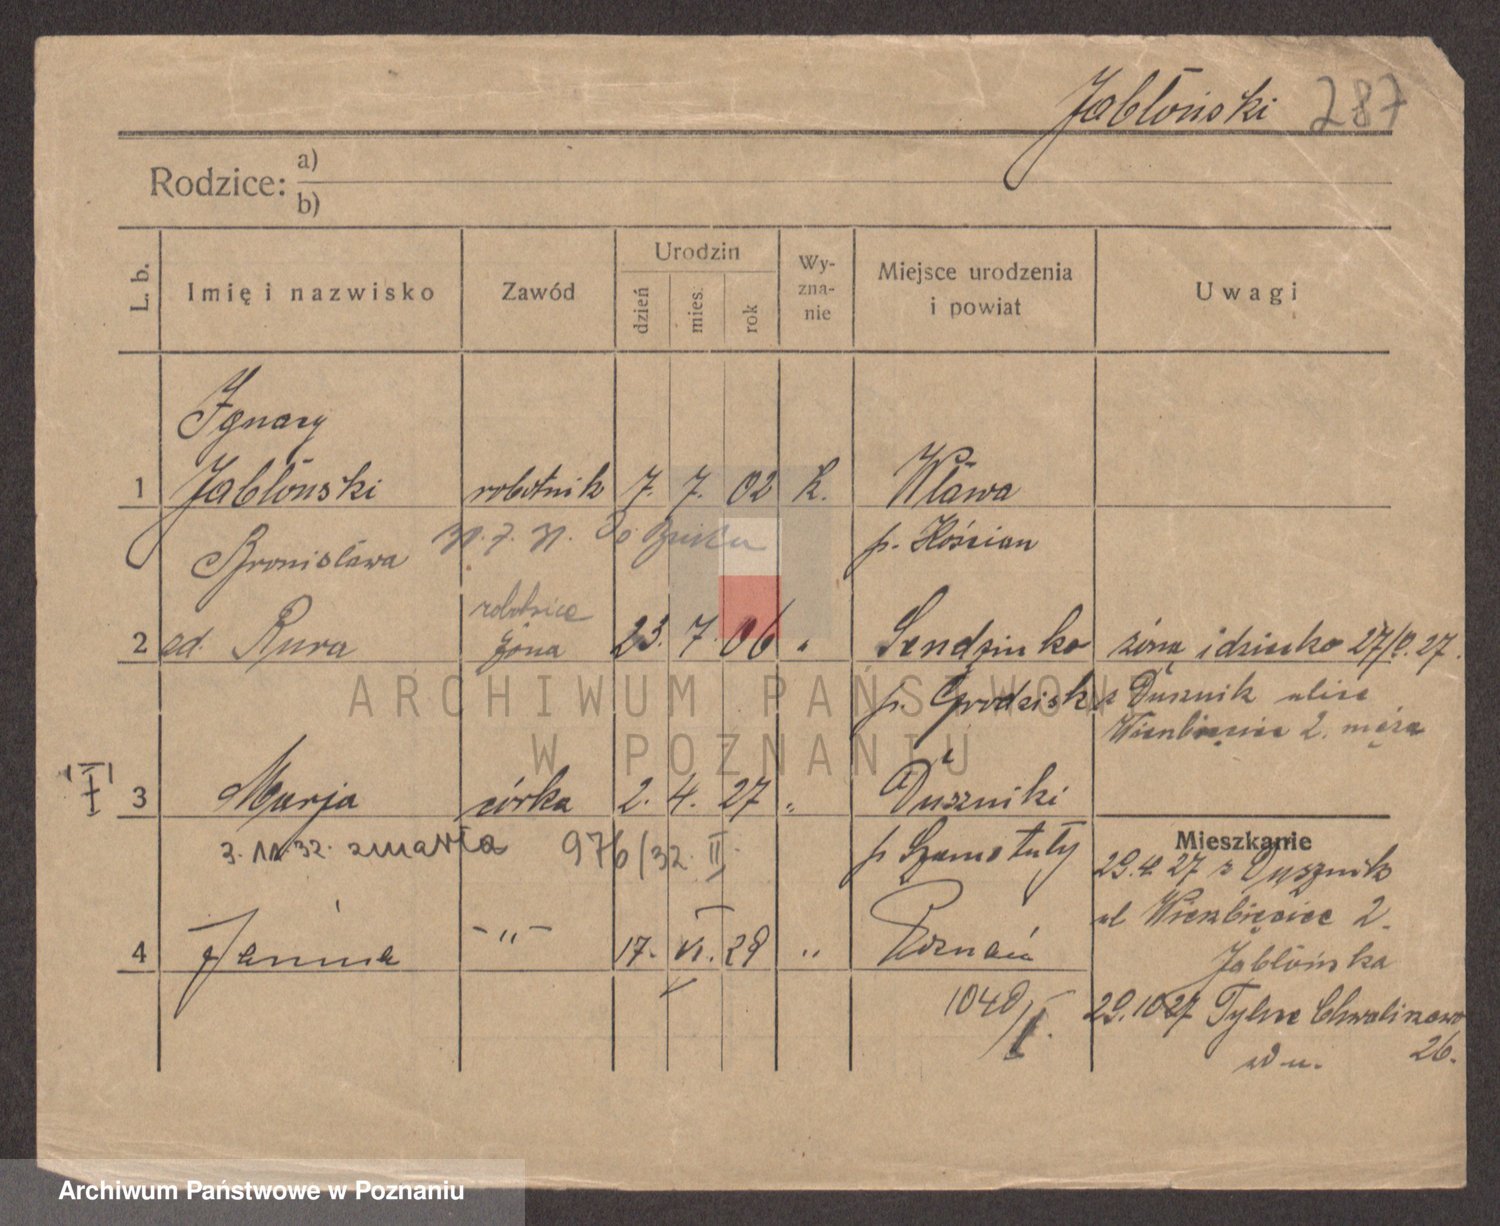 Jabłoński 287
Rodzice: a)
b)
L. b.
Imię i nazwisko
Zawód
Urodzin
dzień
mies.
rok
Wy-
zna-
nie
Miejsce urodzenia
i powiat
Uwagi
Ignacy
1 Jabłoński robotnik 7. 7. 02 k. Wława
p. Kościan
Bronisława
robotnica
2 Rura żona 23. 7. 06 " Sendzinko
p. Grodzisk
żona i dziecko 27/ 27.
z Dusznik ulica
2. męża
3 Marja córka 2. 4. 27 " Duszniki
p. Szamotuły
3. 11. 32. zmarła 976/32. II.
4 Janina -"- 17. VI. 29 " Poznań
1049/I.
Mieszkanie
29.4.27 z Dusznik
ul 2.
Jabłońska
29.10.27 Tylne Chwaliszewo
26.
ARCHIWUM PAŃSTWOWE
W POZNANIU
Archiwum Państwowe w Poznaniu